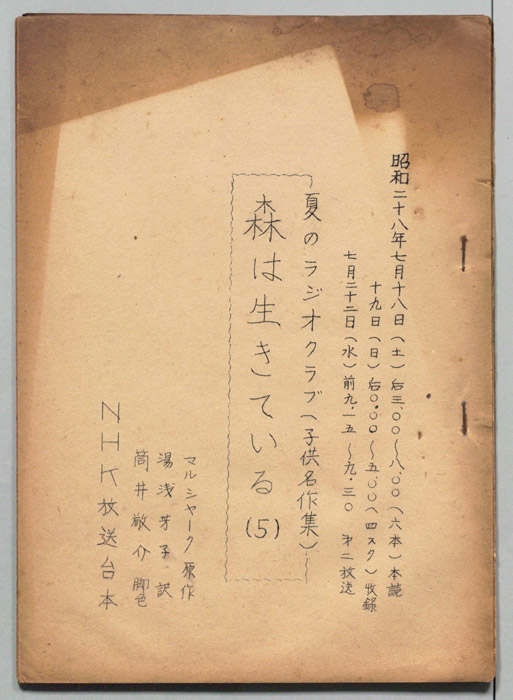 昭和二十八年七月十八日(土)后三.〇〇〜八.〇〇(六本)本読
十九日(日)后〇.〇〇〜五.〇〇(四スタ)收錄
七月二十二日(水)前九.一五〜九.三〇 第二放送
夏のラジオクラブ(子供名作集)
森は生きている(5)
マルシャーク 原作
湯浅芳子 訳
筒井敬介 脚色
NHK放送台本